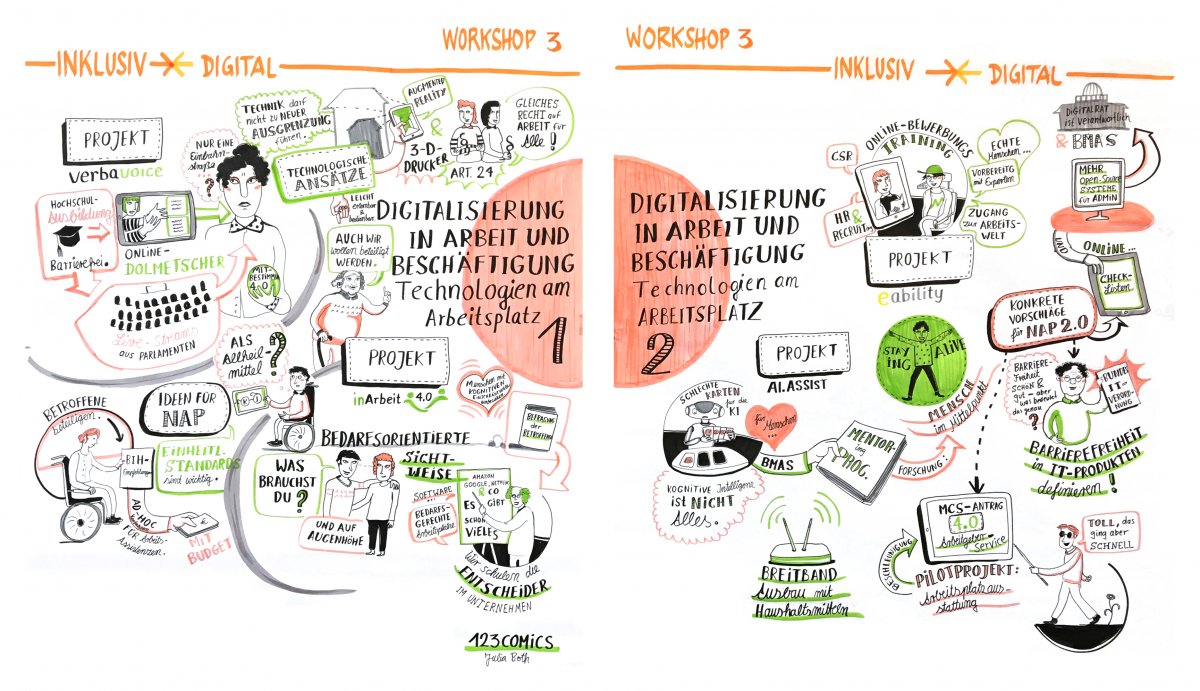 WORKSHOP 3
INKLUSIV DIGITAL
PROJEKT
verbavoice
NUR EINE
Einbahn-
straße?
?
TECHNIK darf
nicht zu NEUER
AUSGRENZUNG
führen.
TECHNOLOGISCHE
ANSÄTZE
AUGMENTED
REALITY
&
3-D-
DRUCKER
GLEICHES
RECHT auf
ARBEIT für
Alle!
ART. 24
HOCHSCHUL-
Ausbildung
Barrierefrei.
ONLINE-
DOLMETSCHER
MIT-
BESTIMMT
4.0
LEICHT
erlernbar &
bedienbar.
AUCH WIR
wollen beteiligt
WERDEN.
DIGITALISIERUNG
IN ARBEIT UND
BESCHÄFTIGUNG
Technologien am
Arbeitsplatz
1
Live-Streams
AUS PARLAMENTEN
ALS
Allheil-
mittel?
PROJEKT
inArbeit 4.0
Menschen mit
KOGNITIVEN
BEFRAGUNG
der
BETROFFENEN
BETROFFENE
beteiligen.
IDEEN FÜR
NAP
K-I
BIH-
Empfehlungen
EINHEITL.
STANDARDS
sind wichtig.
AD HOC
FÜR Arbeits-
Assistenzen.
MIT
BUDGET
BEDARFSORIENTIERTE
SICHT-
WEISE
WAS
BRAUCHST
DU?
UND AUF
AUGENHÖHE
SOFTWARE
BEDARFS-
GERECHTE
Arbeitsplätze
AMAZON
GOOGLE, NETFLIX
& CO
ES GIBT
SCHON
VIELES
Wir schulen die
ENTSCHEIDER
IM UNTERNEHMEN
123COMICS
Julia Both
WORKSHOP 3
INKLUSIV DIGITAL
DIGITALISIERUNG
IN ARBEIT UND
BESCHÄFTIGUNG
Technologien am
ARBEITSPLATZ
2
CSR
HR &
RECRUIT.
ONLINE-BEWERBUNGS
TRAINING
ECHTE
Menschen...
VORBEREITG
mit Experten
ZUGANG
zur ARBEITS-
WELT
PROJEKT
eability
DIGITALRAT
ist verantwortlich
& BMAS
MEHR
Open-Source
SYSTEME
für ADMIN
UND ONLINE...
CHECK-
Listen
KONKRETE
VORSCHLÄGE
für NAP 2.0
PROJEKT
AI.ASSIST
STAY
ING
ALIVE
SCHLECHTE
KARTEN
für die
KI
für Menschen
...
KOGNITIVE Intelligenz
ist NICHT
Alles.
BMAS
MENTOR-
ing
PROG.
FORSCHUNG:
MENSCH
im Mittelpunkt
BARRIERE-
Freiheit
SCHÖN &
gut – aber
was bedeutet
das genau
?
BUNDES
IT-
VERORD-
NUNG
BARRIEREFREIHEIT
in IT-PRODUKTEN
definieren!
BREITBAND
Ausbau mit
Haushaltsmitteln
BESCHLEUNIGUNG
MCS-ANTRAG
4.0
Arbeitgeber-
Service
PILOTPROJEKT:
Arbeitsplatzaus-
stattung
TOLL, das
ging aber
SCHNELL